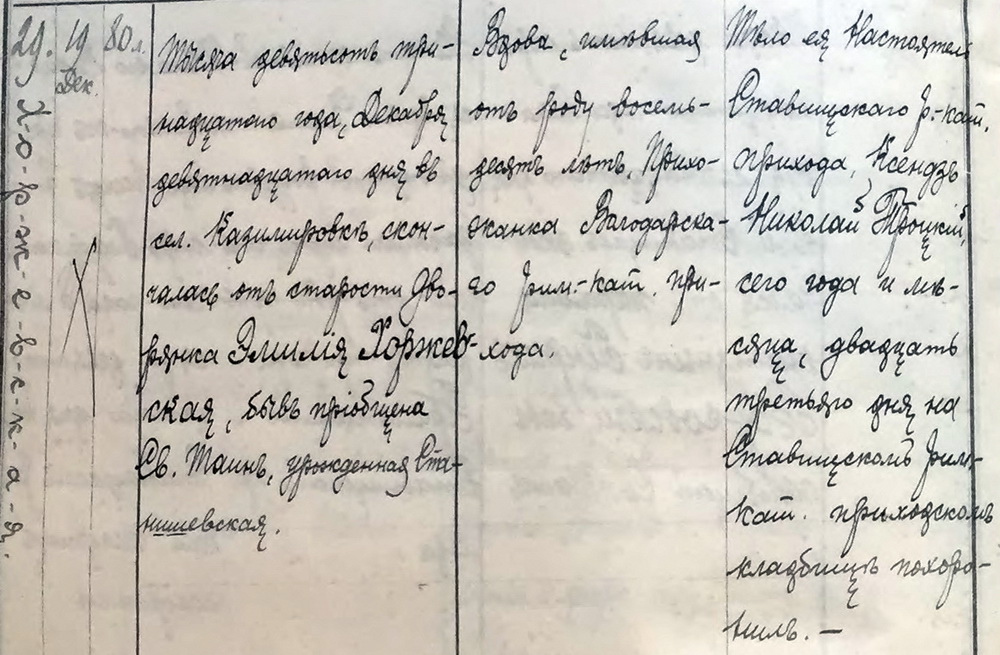 29.
Х-о-р-ж-е-в-с-к-а-я.
19
Дек.
80 л.
Тысяча девятьсотъ три-
надцатого года, Декабря
девятнадцатаго дня въ
сел. Казимировкѣ, скон-
чалась отъ старости Дво-
рянка Эмилія Хоржев-
ская, бывъ пріобщена
Св. Таинъ, урожденная Ста-
нишевская.
Вдова, имѣвшая
отъ роду восемь-
десятъ лѣтъ, Прихо-
жанка Вагодарска-
го Рим.-кат. при-
хода.
Тѣло ея Настоятель
Ставищскаго Р.-кат.
прихода, Ксендзъ
Николай Троцкій,
сего года и мѣ-
сяца, двадцать
третьяго дня на
Ставищскомъ Рим.-
кат. приходскомъ
кладбищѣ похоро-
нилъ. —